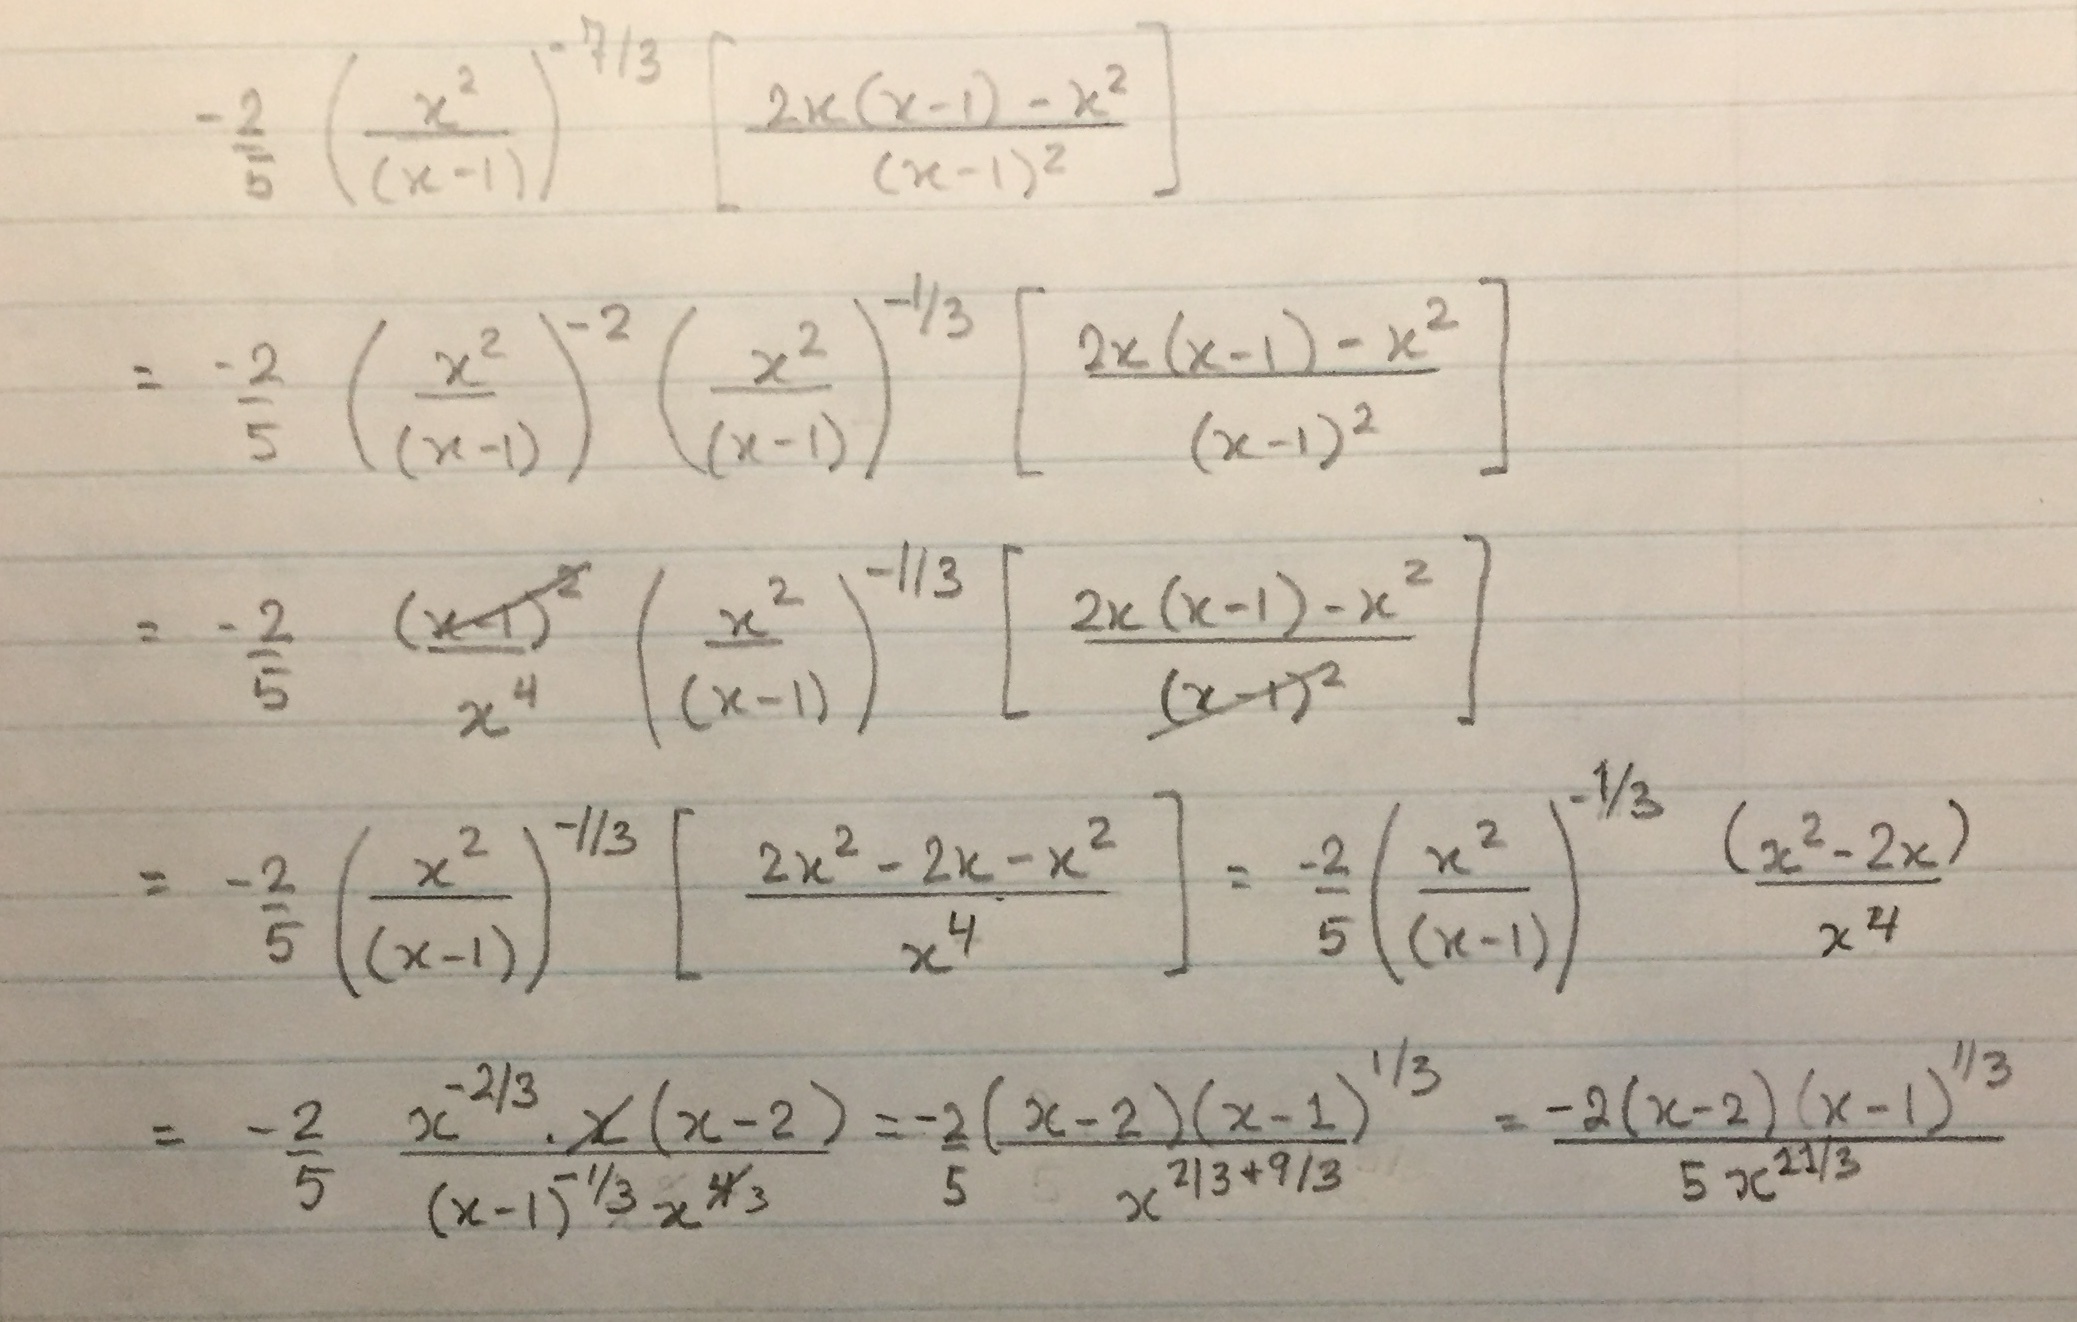 -2/5 (x²/(x-1))^(-7/3) [(2x(x-1) - x²)/(x-1)²]
= -2/5 (x²/(x-1))^(-2) (x²/(x-1))^(-1/3) [(2x(x-1) - x²)/(x-1)²]
= -2/5 (x-1)²/x⁴ (x²/(x-1))^(-1/3) [(2x(x-1) - x²)/(x-1)²]
= -2/5 (x²/(x-1))^(-1/3) [(2x² - 2x - x²)/x⁴] = -2/5 (x²/(x-1))^(-1/3) (x² - 2x)/x⁴
= -2/5 (x^(-2/3) · x(x-2))/((x-1)^(-1/3) x^(4 3)) = -2/5 ((x-2)(x-1)^(1/3))/x^(2/3+9/3) = (-2(x-2)(x-1)^(1/3))/(5x^(21/3))